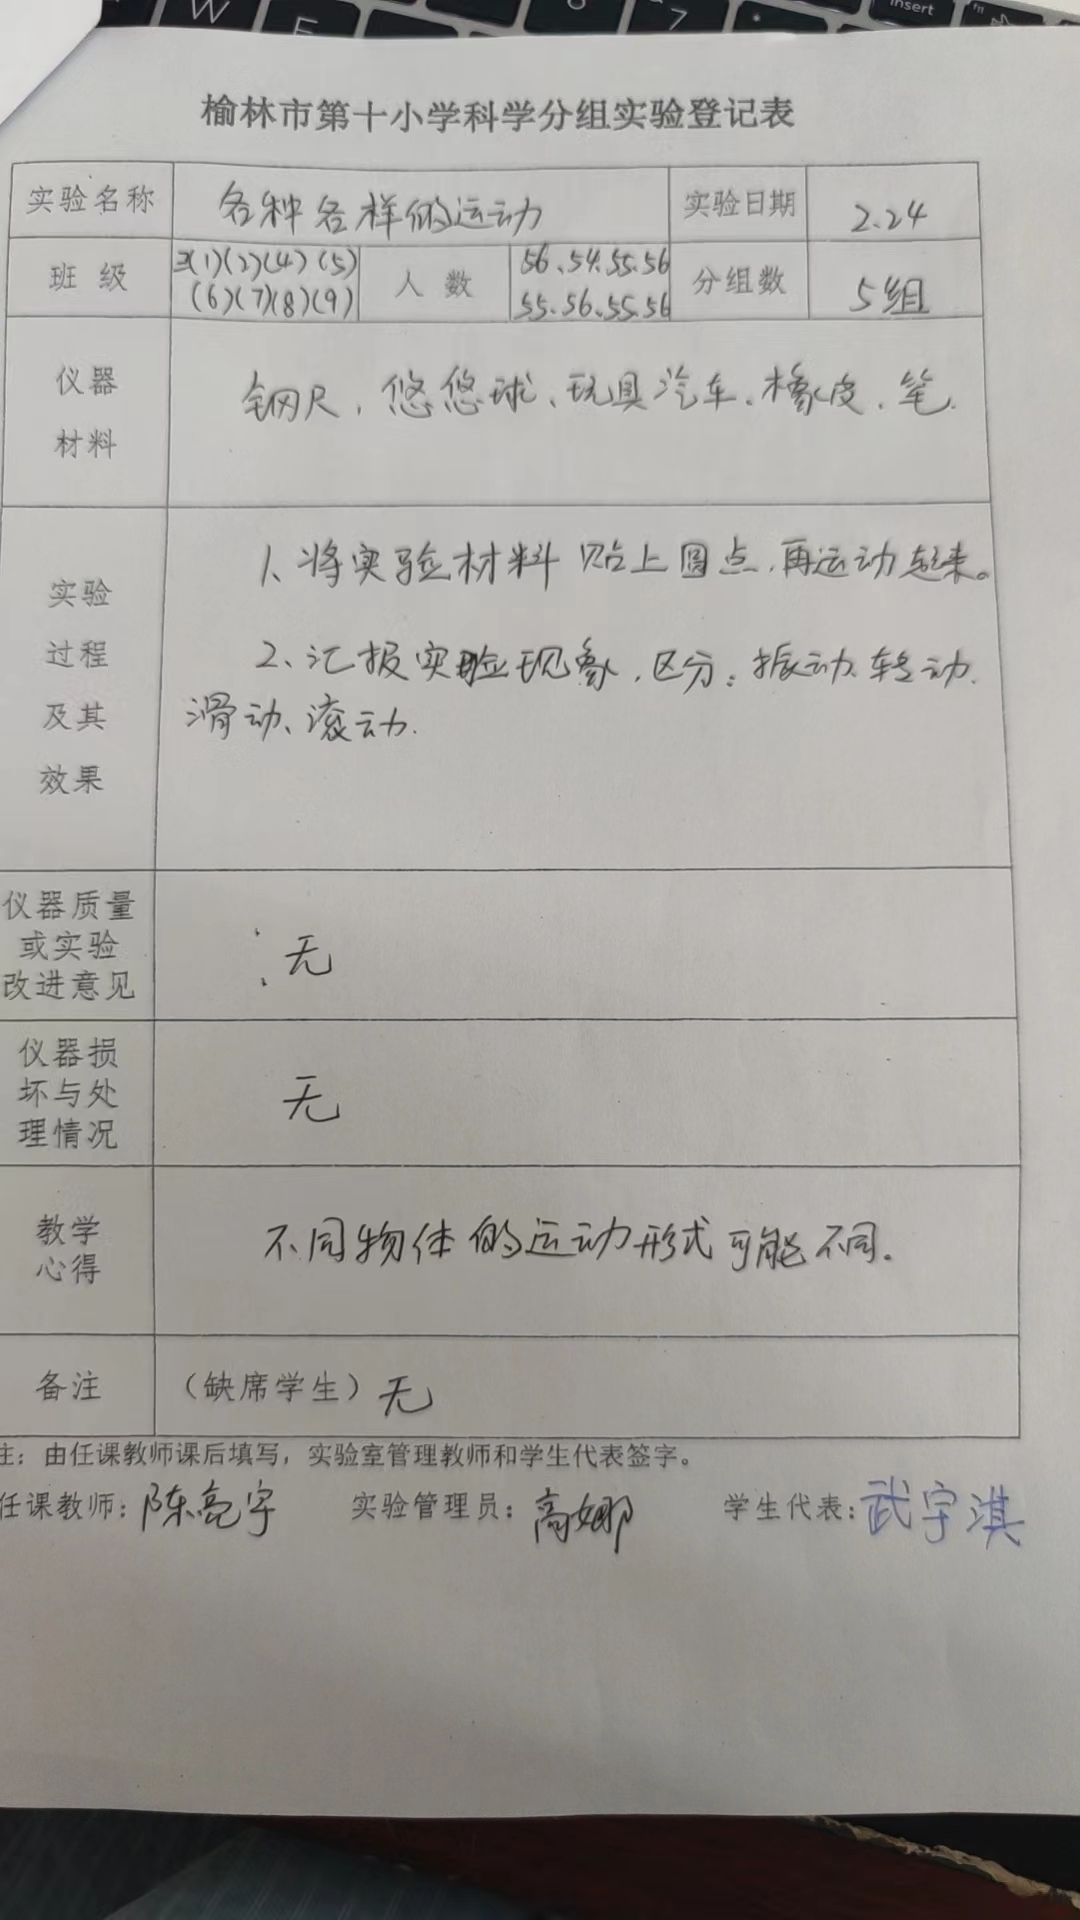 insert
W
E
6
7
榆林市第十小学科学分组实验登记表
实验名称 各种各样的运动 实验日期 2.24
班 级 3(1)(2)(4)(5) 人 数 56.54.55.56 分组数 5组
(6)(7)(8)(9) 55.56.55.56
仪器 钢尺、悠悠球、玩具汽车、橡皮、笔.
材料
实验 1、将实验材料贴上圆点,再运动起来。
过程 2、汇报实验现象,区分:振动、转动.
及其 滑动、滚动.
效果
仪器质量
或实验 无
改进意见
仪器损
坏与处 无
理情况
教学 不同物体的运动形式可能不同.
心得
备注 (缺席学生)无
注:由任课教师课后填写,实验室管理教师和学生代表签字。
任课教师:陈亮宇 实验管理员:高娜 学生代表:武宇淇